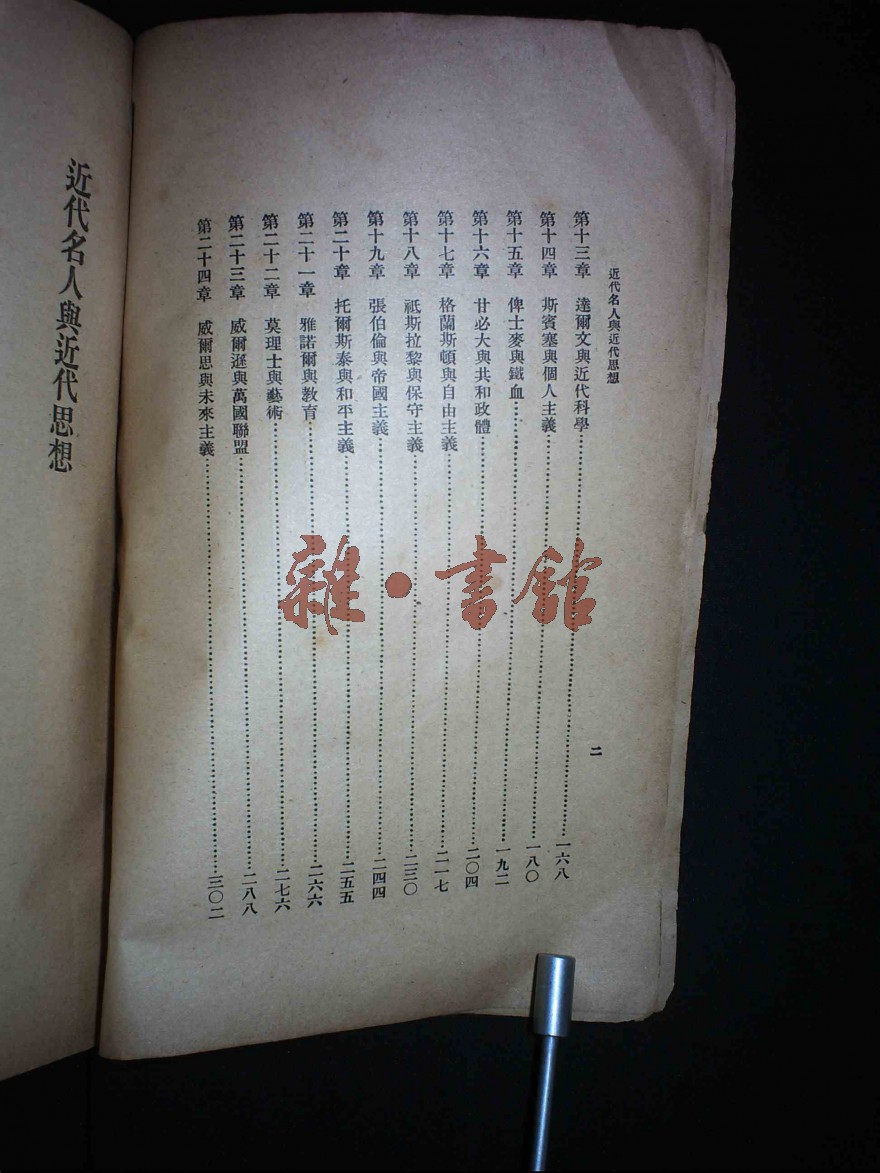 近代名人與近代思想
二
第十三章 達爾文與近代科學……一六八
第十四章 斯賓塞與個人主義……一八〇
第十五章 俾士麥與鐵血……一九二
第十六章 甘必大與共和政體……二〇四
第十七章 格蘭斯頓與自由主義……二一七
第十八章 祇斯拉黎與保守主義……二三〇
第十九章 張伯倫與帝國主義……二四四
第二十章 托爾斯泰與和平主義……二五五
第二十一章 雅諾爾與教育……二六六
第二十二章 莫理士與藝術……二七六
第二十三章 威爾遜與萬國聯盟……二八八
第二十四章 威爾思與未來主義……三〇二
近代名人與近代思想
雜·書館